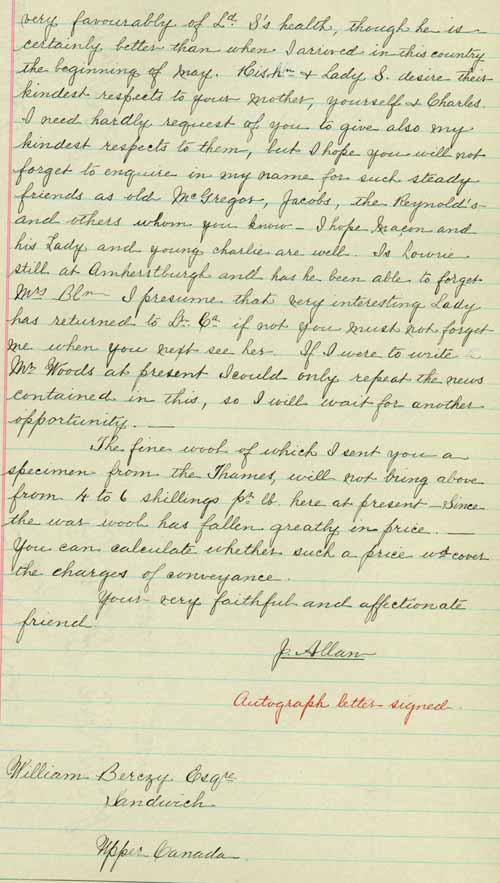 very favourably of Ld. S's health, though he is
certainly better than when I arrived in this country
the beginning of May. His & Lady S. desire their
kindest respects to your Mother, yourself & Charles.
I need hardly request of you to give also my
kindest respects to them, but I hope you will not
forget to enquire in my name for such steady
friends as old McGregor, Jacobs, the Reynold's
and others whom you know – I hope Maçon and
his Lady and young charlie are well. Is Lowrie
still at Amherstburgh and has he been able to forget
Mrs Bln I presume that very interesting Lady
has returned to Lr. Ca. if not you must not forget
me when you next see her. If I were to write
Mr. Woods at present I could only repeat the news
contained in this, so I will wait for another
opportunity. —
The fine wool of which I sent you a
specimen from the Thames, will not bring above
from 4 to 6 shillings pr. lb. here at present – Since
the war wool has fallen greatly in price. —
You can calculate whether such a price wd cover
the charges of conveyance.
Your very faithful and affectionate
friend
J. Allan
Autograph letter signed.
William Berczy Esqre
Sandwich
Upper Canada.